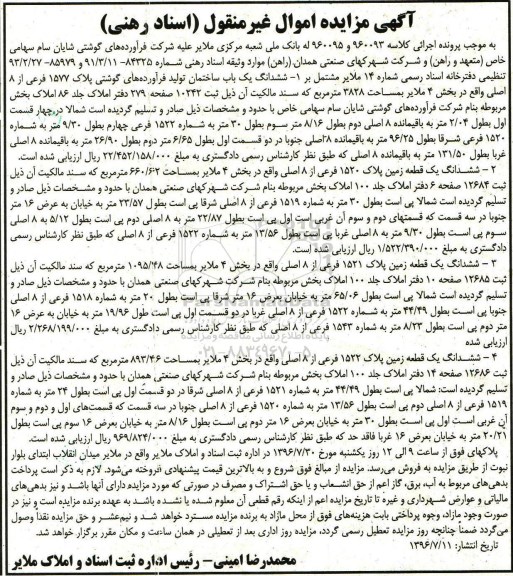 آگهی مزایده اموال غیرمنقول (اسناد رهنی)
به موجب پرونده اجرائی کلاسه ۹۶۰۰۹۳ و ۹۶۰۰۹۵ له بانک ملی شعبه مرکزی ملایر علیه شرکت فرآورده‌های گوشتی شایان سام سهامی
خاص (متعهد و راهن) و شرکت شهرکهای صنعتی همدان (راهن) موارد وثیقه اسناد رهنی شماره ۸۴۳۲۵-۹۱/۳/۱۱ و ۸۵۹۷۹-۹۳/۲/۲۷
تنظیمی دفترخانه اسناد رسمی شماره ۱۴ ملایر مشتمل بر ۱- ششدانگ یک باب ساختمان تولید فرآورده‌های گوشتی پلاک ۱۵۷۷ فرعی از ۸
اصلی واقع در بخش ۴ ملایر بمساحت ۳۸۲۸ مترمربع که سند مالکیت آن ذیل ثبت ۱۰۲۴۲ صفحه ۲۷۹ دفتر املاک جلد ۸۶ املاک بخش
مربوطه بنام شرکت فرآورده‌های گوشتی شایان سام سهامی خاص با حدود و مشخصات ذیل صادر و تسلیم گردیده است شمالا در چهار قسمت
اول بطول ۲/۰۴ متر به باقیمانده ۸ اصلی دوم بطول ۸/۱۶ متر سوم بطول ۳۰ متر به شماره ۱۵۲۲ فرعی چهارم بطول ۹/۳۰ متر به شماره
۱۵۲۰ فرعی شرقا بطول ۹۶/۲۵ متر به باقیمانده ۸اصلی جنوبا در دو قسمت اول بطول ۶/۶۵ متر دوم بطول ۲۶/۹۰ متر به باقیمانده ۸ اصلی
غربا بطول ۱۳۱/۵۰ متر به باقیمانده ۸ اصلی که طبق نظر کارشناس رسمی دادگستری به مبلغ ۲۲/۴۵۲/۱۵۸/۰۰۰ ریال ارزیابی شده است.
۲ - ششدانگ یک قطعه زمین پلاک ۱۵۲۰ فرعی از ۸ اصلی واقع در بخش ۴ ملایر بمساحت ۶۶۰/۶۲ مترمربع که سند مالکیت آن ذیل
ثبت ۱۲۶۸۴ صفحه ۶ دفتر املاک جلد ۱۰۰ املاک بخش مربوطه بنام شرکت شهرکهای صنعتی همدان با حدود و مشخصات ذیل صادر و
تسلیم گردیده است شمالا پی است بطول ۳۰ متر به شماره ۱۵۱۹ فرعی از ۸ اصلی شرقا پی است بطول ۲۳/۵۷ متر به خیابان به عرض ۱۶ متر
جنوبا در سه قسمت که قسمتهای دوم و سوم آن غربی است اول پی است بطول ۲۲/۸۷ متر به ۸ اصلی دوم پی است بطول ۵/۱۲ به ۸ اصلی
سوم پی است بطول ۹/۳۰ متر به ۸ اصلی غربا پی است بطول ۱۳/۵۶ متر به شماره ۱۵۲۲ فرعی از ۸ اصلی که طبق نظر کارشناس رسمی
دادگستری به مبلغ ۱/۵۲۲/۳۹۰/۰۰۰ ریال ارزیابی شده است.
۳ - ششدانگ یک قطعه زمین پلاک ۱۵۲۱ فرعی از ۸ اصلی واقع در بخش ۴ ملایر بمساحت ۱۰۹۵/۴۸ مترمربع که سند مالکیت آن ذیل
ثبت ۱۲۶۸۵ صفحه ۱۰ دفتر املاک جلد ۱۰۰ املاک بخش مربوطه بنام شرکت شهرکهای صنعتی همدان با حدود و مشخصات ذیل صادر و
تسلیم گردیده است شمالا پی است بطول ۶۵/۰۶ متر به خیابان بعرض ۱۶ متر شرقا پی است بطول ۲۰ متر به شماره ۱۵۱۸ فرعی از ۸ اصلی
جنوبا پی است بطول ۴۴/۴۹ متر به شماره ۱۵۲۲ فرعی از ۸ اصلی غربا در دو قسمت اول پی است طول ۱۹/۹۶ متر به خیابان به عرض ۱۶
متر دوم پی است بطول ۸/۲۳ متر به شماره ۱۵۴۳ فرعی از ۸ اصلی که طبق نظر کارشناس رسمی دادگستری به مبلغ ۲/۲۶۸/۱۹۹/۰۰۰ ریال
ارزیابی شده است.
۴ - ششدانگ یک قطعه زمین پلاک ۱۵۲۲ فرعی از ۸ اصلی واقع در بخش ۴ ملایر بمساحت ۸۹۳/۴۶ مترمربع که سند مالکیت آن ذیل
ثبت ۱۲۶۸۶ صفحه ۱۴ دفتر املاک جلد ۱۰۰ املاک بخش مربوطه بنام شرکت شهرکهای صنعتی همدان با حدود و مشخصات ذیل صادر و
تسلیم گردیده است: شمالا پی است بطول ۴۴/۴۹ متر به شماره ۱۵۲۱ فرعی از ۸ اصلی شرقا در دو قسمت اول پی است بطول ۲۴ متر به شماره
۱۵۱۹ فرعی از ۸ اصلی دوم پی است بطول ۱۳/۵۶ متر به شماره ۱۵۲۰ فرعی از ۸ اصلی جنوبا در سه قسمت که قسمت‌های اول و دوم و سوم
آن غربی است اول پی است بطول ۳۰ متر به خیابان بعرض ۱۶ متر دوم پی است بطول ۸/۱۶ متر به خیابان بعرض ۱۶ سوم پی است بطول
۲۰/۲۱ متر به خیابان بعرض ۱۶ غربا فاقد حد که طبق نظر کارشناس رسمی دادگستری به مبلغ ۹۶۹/۸۲۴/۰۰۰ ریال ارزیابی شده است.
پلاکهای فوق از ساعت ۹ الی ۱۲ روز یکشنبه مورخ ۱۳۹۶/۷/۳۰ در اداره ثبت اسناد و املاک ملایر واقع در ملایر میدان انقلاب ابتدای بلوار
نبوت از طریق مزایده به فروش می‌رسد. مزایده از مبالغ فوق شروع و به بالاترین قیمت پیشنهادی فروخته می‌شود. لازم به ذکر است پرداخت
بدهی‌های مربوط به آب، برق، گاز اعم از حق انشعاب و یا حق اشتراک و مصرف در صورتی که مورد مزایده دارای آنها باشد و نیز بدهی‌های
مالیاتی و عوارض شهرداری و غیره تا تاریخ مزایده اعم از اینکه رقم قطعی آن معلوم شده یا نشده باشد به عهده برنده مزایده است و نیز در
صورت وجود مازاد، وجوه پرداختی بابت هزینه‌های فوق از محل مازاد به برنده مزایده مسترد خواهد شد و نیم‌عشر و حق مزایده نقداً وصول
می‌گردد ضمناً چنانچه روز مزایده تعطیل رسمی گردد، مزایده روز اداری بعد از تعطیلی در همان ساعت و مکان مقرر برگزار خواهد شد.
تاریخ انتشار: ۱۳۹۶/۷/۱۱
محمدرضا امینی- رئیس اداره ثبت اسناد و املاک ملایر